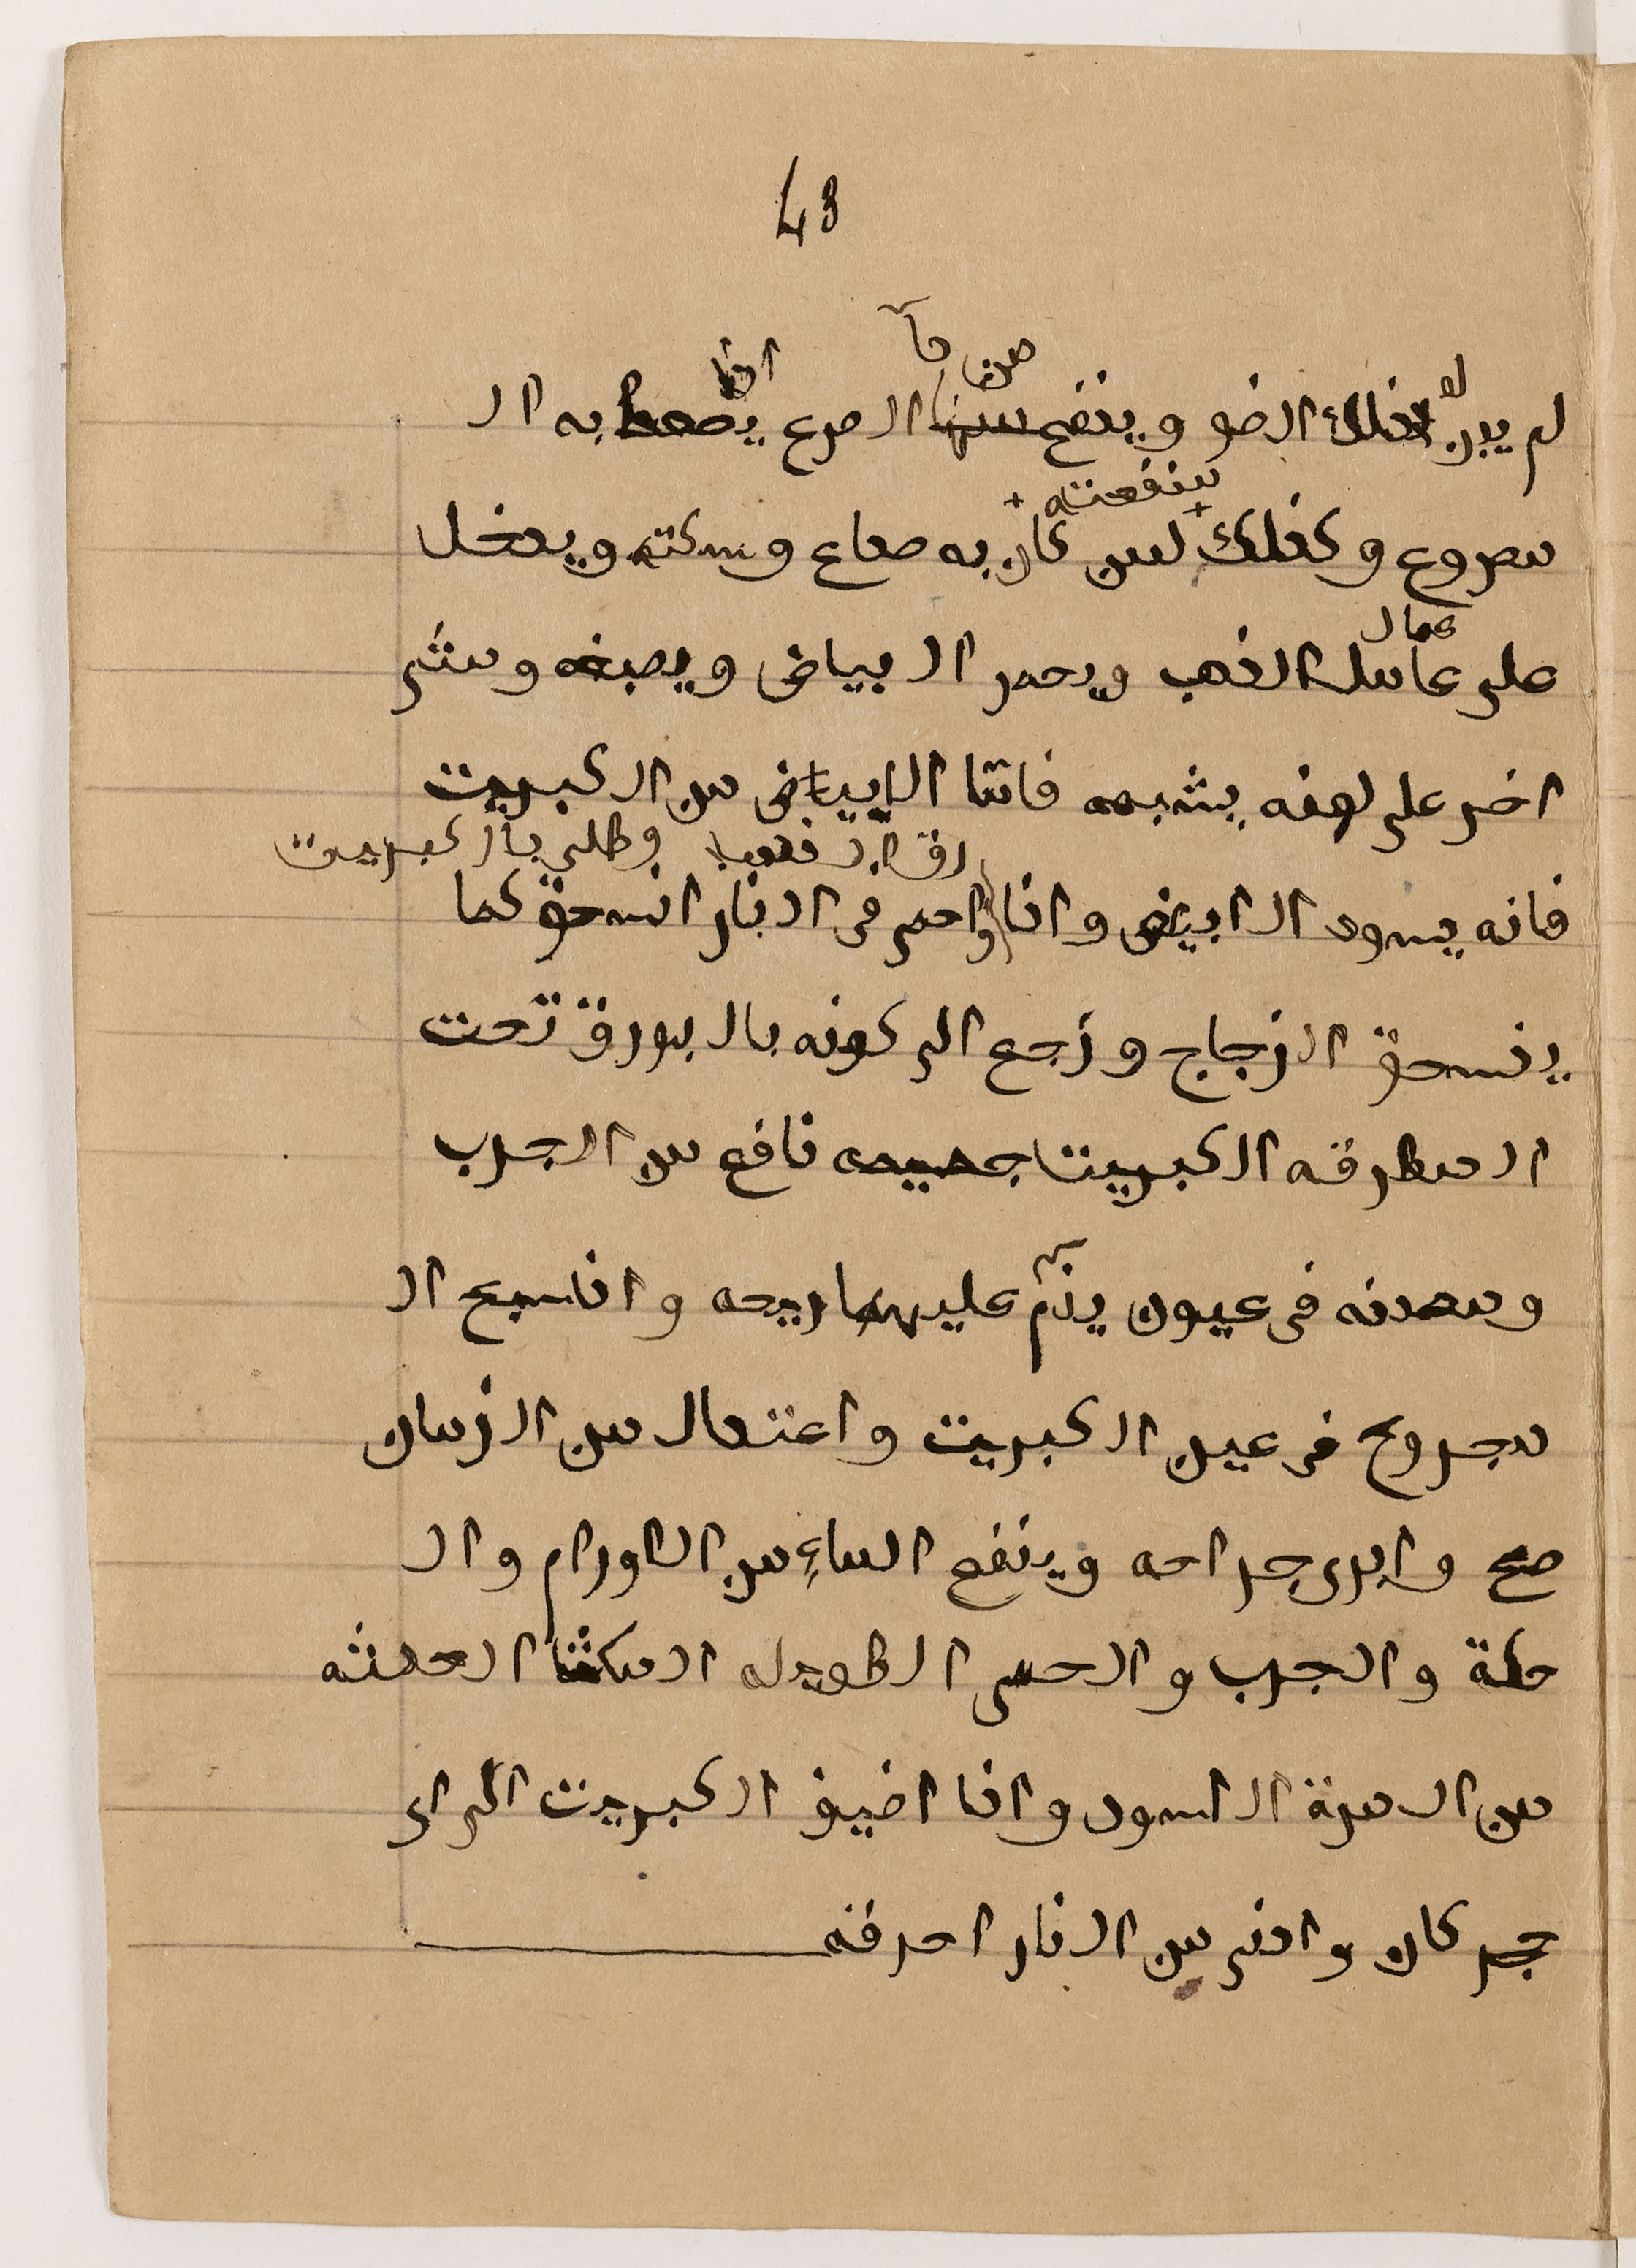 43
لم يبن له ذلك الضو وينفع من الصرع اذا يصعط به ال
مصروع وكذلك لمن كان به صداع وسكته ويدخل
على عمال الذهب ويحمر البياض ويصبغه ومتى
اخر على لونه يشبهه فامّا البياض من الكبريت
رقق الذهب وطلى بالكبريت
فانه يسود الابيض واذا واحمى فى النار انسحق كما
ينسحق الزجاج ورجع الى كونه بالبورق تحت
المطرقه الكبريت نافع من الجرب
ومعدنه فى عيون ينمّ عليها ريحه واذا سبح ال
مجروح فى عين الكبريت واعتدال من الزمان
صح وابرى جراحه وينفع الماءِ من الاورام وال
حكة والجرب والحمى الطويله
من المرة السود واذا اضيف الكبريت الى اى
حجر كان وادنى من النار احرقه